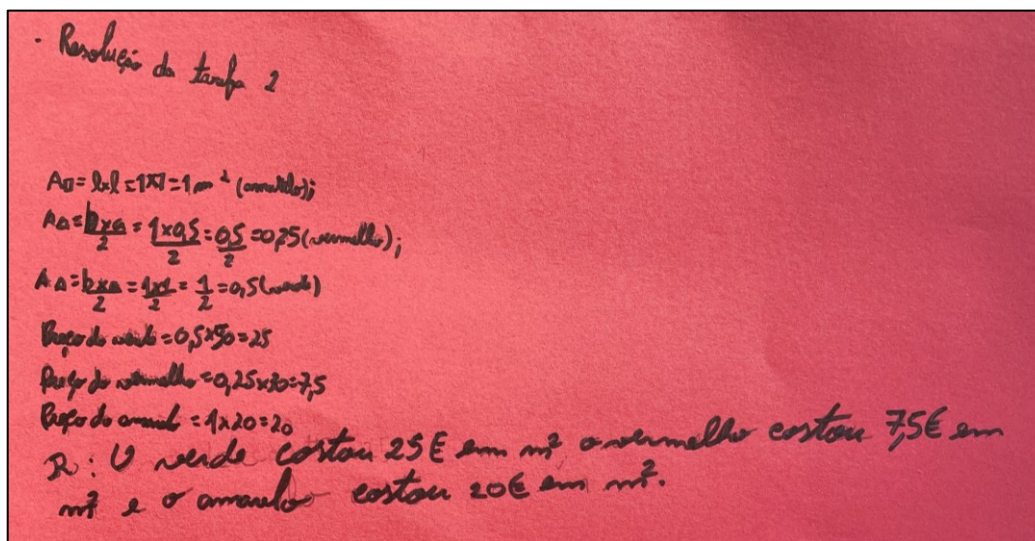 · Resolução da tarefa 2
A□ = lxl = 1x1 = 1 m² (amarelo);
A△ = bxa/2 = 1x0,5/2 = 0,5/2 = 0,25 (vermelho);
A△ = bxa/2 = 1x1/2 = 1/2 = 0,5 (verde)
Preço do verde = 0,5x50 = 25
Preço do vermelho = 0,25x30 = 7,5
Preço do = 1x20 = 20
R: O verde costou 25€ em m² o vermelho costou 7,5€ em
m² e o amarelo costou 20€ em m².